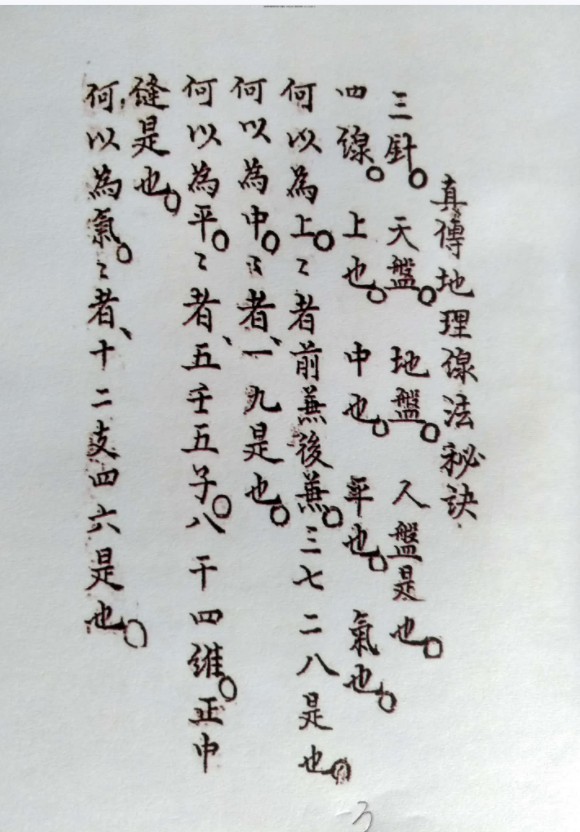 真傳地理線法秘訣
三針。天盤。地盤。人盤是也。
四線。上也。中也。平也。氣也。
何以為上。〻者前兼後兼。三七二八是也。
何以為中。〻者、一九是也。
何以為平。〻者、五壬五子。八干四維。正中
縫是也。
何以為氣。〻者、十二支四六是也。